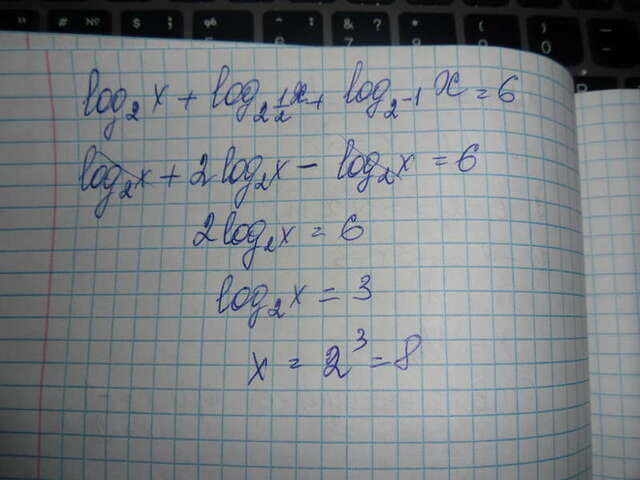 log₂x + log_{2^{1/2}}x + log_{2^{-1}}x = 6
log₂x + 2log₂x - log₂x = 6
2log₂x = 6
log₂x = 3
x = 2³ = 8